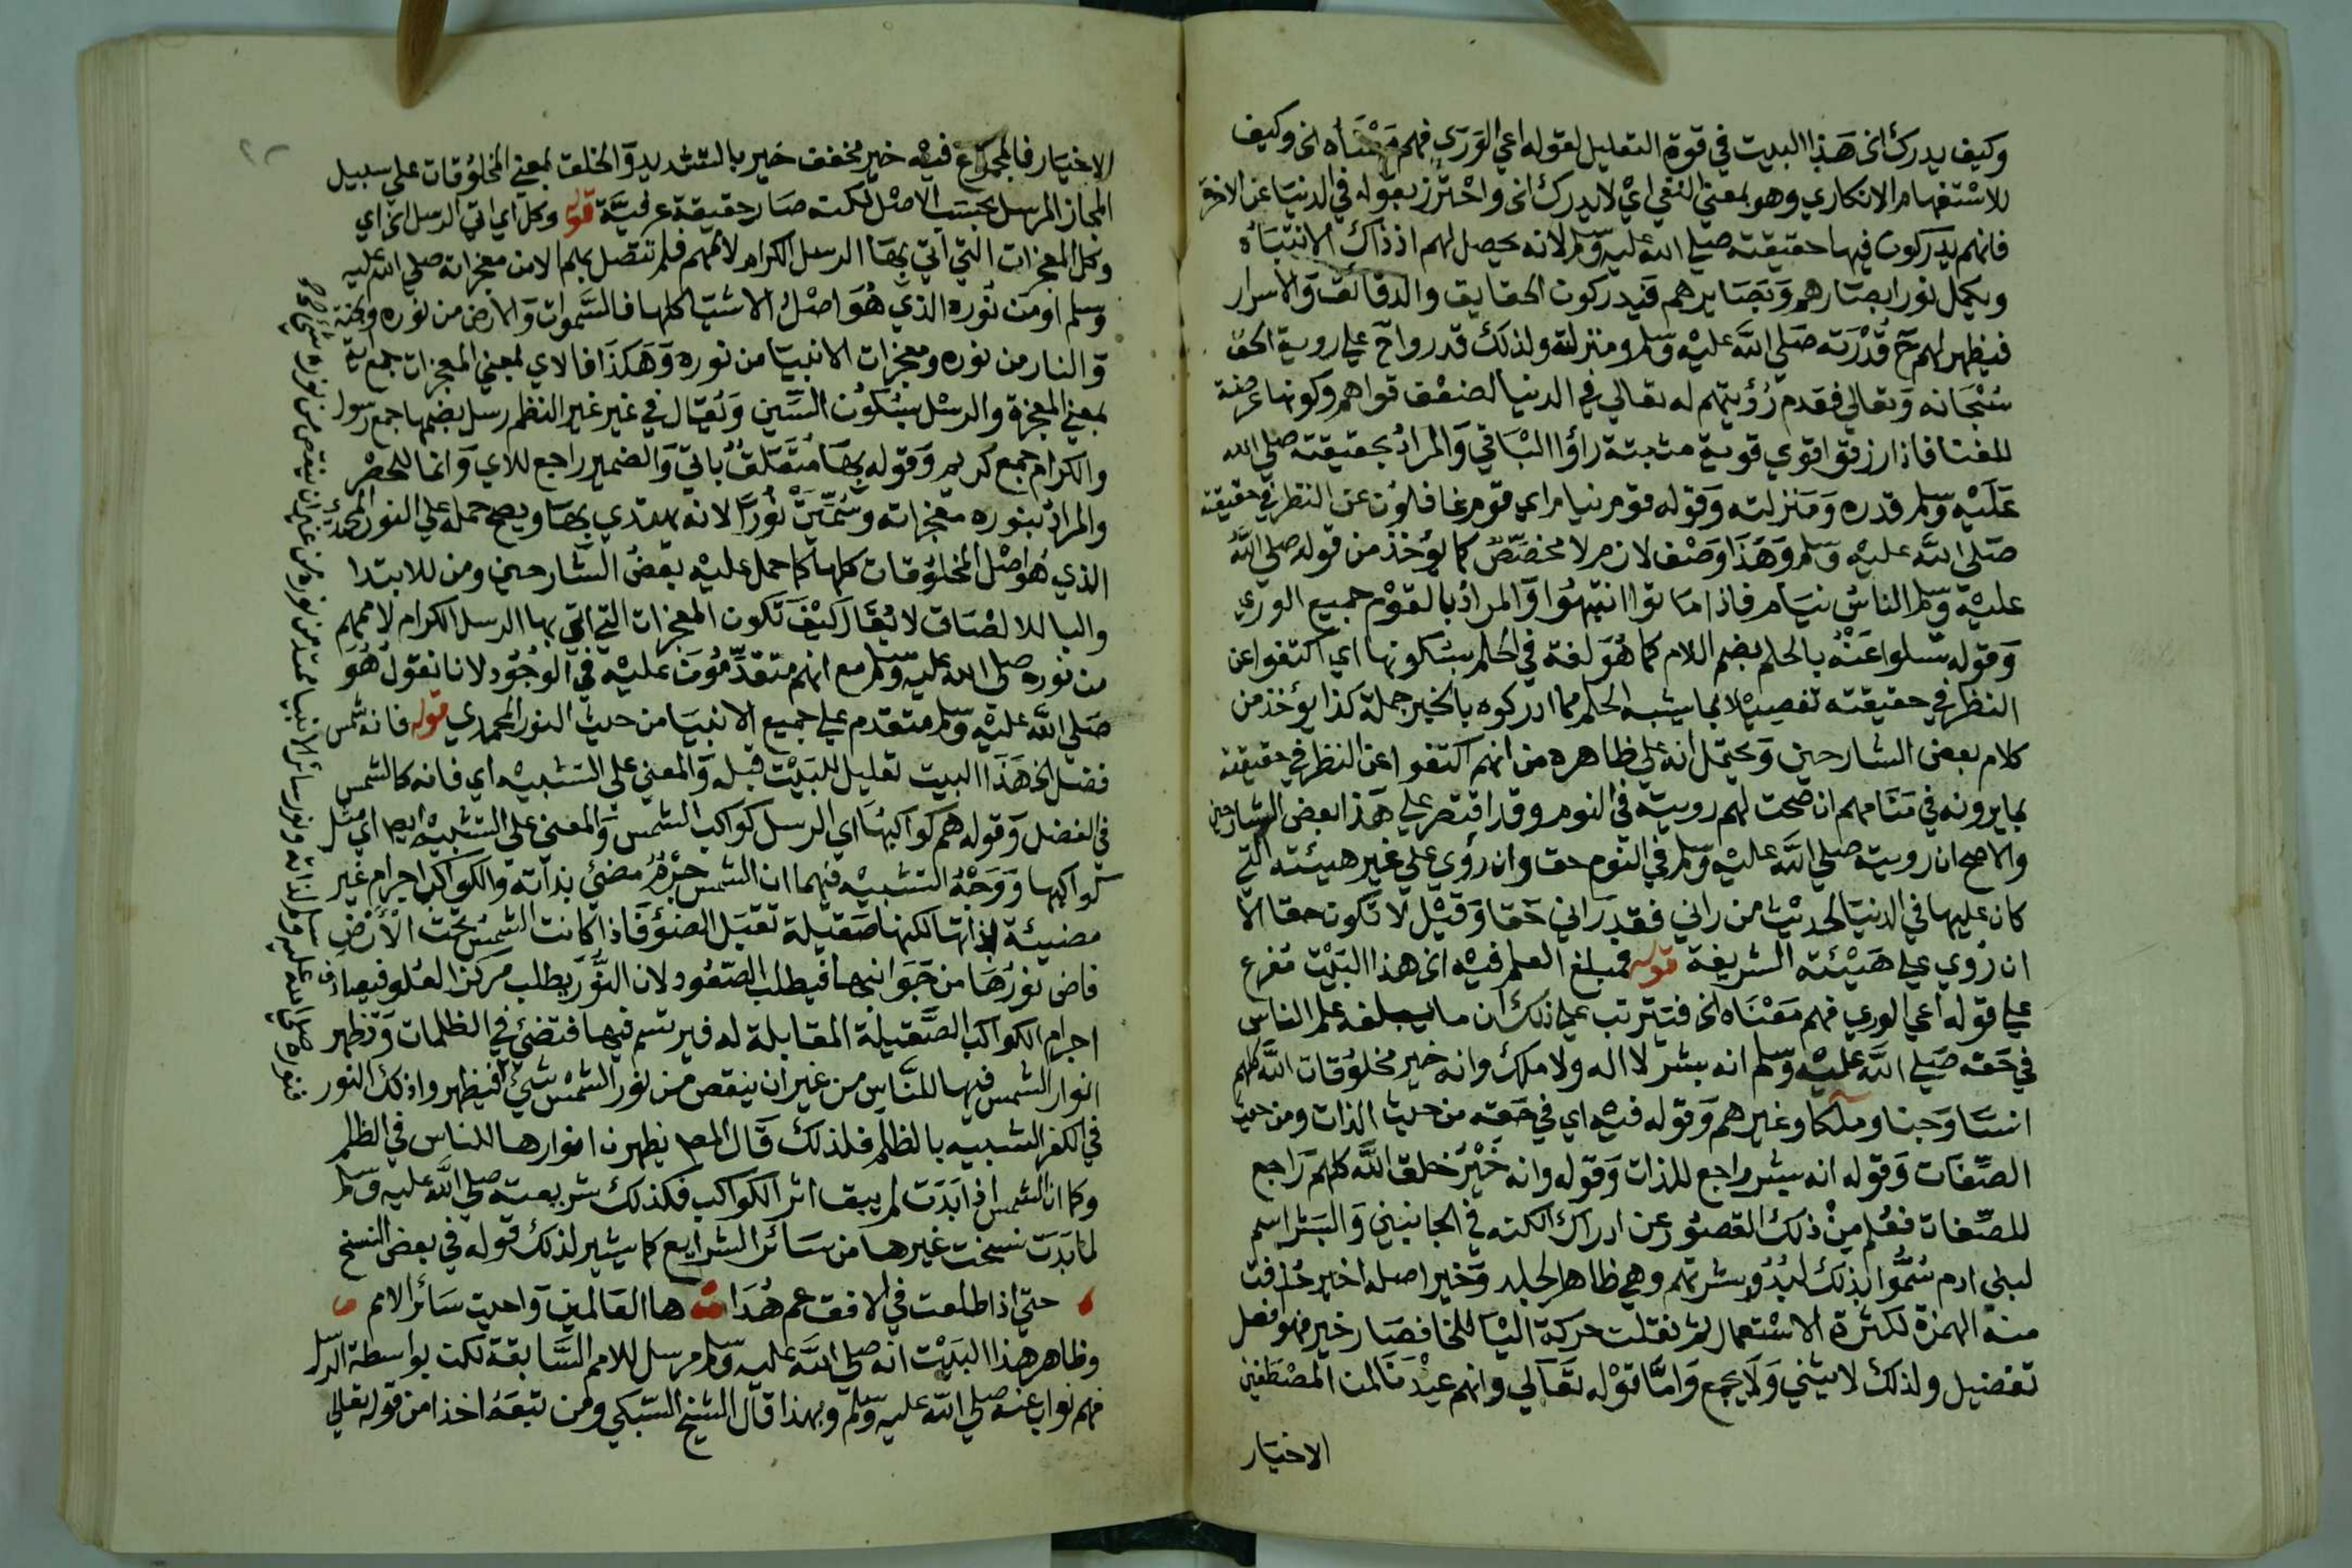 وكيف يدرك الخ هذا البيت في قوة التعليل لقوله اعي الوري فهم معناه الخ وكيف
للاستفهام الانكاري وهو بمعني النفي اي لا يدرك الخ واحترز بقوله في الدنيا عن الاخرة
فانهم يدركون فيها حقيقته صلي الله عليه وسلم لانه يحصل لهم اذ ذاك الانتباه
ويكمل نور ابصارهم وبصايرهم فيدركون الحقايق والدقائق والاسرار
فيظهر لهم ح قدرته صلي الله عليه وسلم ومنزلته ولذلك قدروا ح علي روية الحق
سبحانه وتعالي فعدم رؤيتهم له تعالي في الدنيا لضعف قواهم وكونها عرضة
للفنا فاذا رزقوا قوي قوية مثبتة راؤا الباقي والمراد بحقيقته صلي الله
عليه وسلم قدره ومنزلته وقوله قوم نيام اي قوم غافلون عن النظر في حقيقته
صلي الله عليه وسلم وهذا وصف لازم لا مخصص كما يؤخذ من قوله صلي الله
عليه وسلم الناس نيام فاذا ماتوا انتبهوا والمراد بالقوم جميع الوري
وقوله تسلوا عنه بالحلم بضم اللام كما هو لغة في الحلم بسكونها اي اكتفوا عن
النظر في حقيقته تفصيلا بما يشبه الحلم مما ادركوه بالخير جملة كذا يؤخذ من
كلام بعض الشارحين ويحتمل انه علي ظاهره من انهم اكتفوا عن النظر في حقيقته
بما يرونه في منامهم ان صحت لهم رويته في النوم وقد اقتصر علي هذا بعض الشارحين
والاصح ان رويته صلي الله عليه وسلم في النوم حق وان رؤي علي غير هيئته التي
كان عليها في الدنيا لحديث من راني فقد راني حقا وقيل لا تكون حقا الا
ان رؤي علي هيئته الشريفة قوله فمبلغ العلم فيه الخ هذا البيت مفرع
علي قوله اعي الوري فهم معناه الخ فترتب علي ذلك ان ما يبلغه علم الناس
في حقه صلي الله عليه وسلم انه بشر لا اله ولا ملك وانه خير مخلوقات الله كلهم
انسا وجنا وملكا وغيرهم وقوله فيه اي في حقه من حيث الذات ومن حيث
الصفات وقوله انه بشر راجع للذات وقوله وانه خير خلق الله كلهم راجع
للصفات فعلم من ذلك القصور عن ادراك الكنه في الجانبين والبشر اسم
لبني ادم سموا بذلك لبدو بشرتهم وهي ظاهر الجلد وخير اصله اخير حذفت
منه الهمزة لكثرة الاستعمال ثم نقلت حركة اليا للخا فصار خير فهو افعل
تفضيل ولذلك لا يثني ولا يجمع واما قوله تعالي وانهم عندنا لمن المصطفين
الاخيار
الاخيار فالمجموع فيه خير مخفف خير بالتشديد والخلق بمعني المخلوقات علي سبيل
المجاز المرسل بحسب الاصل لكنه صار حقيقة عرفية قوله وكل اي اتي الرسل الخ اي
وكل المعجزات التي اتي بها الرسل الكرام لاممهم فلم تتصل بهم الا من معجزاته صلي الله عليه
وسلم او من نوره الذي هو اصل الاشيا كلها فالسموات والارض من نوره والجنة
والنار من نوره ومعجزات الانبيا من نوره وهكذا فالاي بمعني المعجزات جمع اية
بمعني المعجزة والرسل بسكون السين ويقال في غير غير النظم رسل بضمها جمع رسول
والكرام جمع كريم وقوله بها متعلق باتي والضمير راجع للاي وانما للحصر
والمراد بنوره معجزاته وسميت نورا لانه يهتدي بها ويصح حمله علي النور المحمدي
الذي هو اصل المخلوقات كلها كما حمل عليه بعض الشارحين ومن للابتدا
والبا للالصاق لا يقال كيف تكون المعجزات التي اتي بها الرسل الكرام لاممهم
من نوره صلي الله عليه وسلم مع انهم متقدمون عليه في الوجود لانا نقول هو
صلي الله عليه وسلم متقدم علي جميع الانبيا من حيث النور المحمدي قوله فانه شمس
فضل الخ هذا البيت تعليل للبيت قبله والمعني علي التشبيه اي فانه كالشمس
في الفضل وقوله هم كواكبها اي الرسل كواكب الشمس والمعني علي التشبيه ايضا اي مثل
كواكبها ووجه التشبيه فيهما ان الشمس جرم مضئي بذاته والكواكب اجرام غير
مضيئة لذاتها لكنها صقيلة تقبل الضؤ فاذا كانت الشمس تحت الارض
فاض نورها من جوانبها فيطلب الصعود لان النور يطلب مركز العلو فيصادف
اجرام الكواكب الصقيلة المقابلة له فيرتسم فيها فتضئي في الظلمات وتظهر
انوار الشمس فيها للناس من غير ان ينقص من نور الشمس شئي
في الكفر الشبيه بالظلم فلذلك قال المص يظهرن انوارها للناس في الظلم
وكما ان الشمس اذا بدت لم يبق اثر الكواكب فكذلك شريعته صلي الله عليه وسلم
لما بدت نسخت غيرها من سائر الشرايع كما يشير لذلك قوله في بعض النسخ
حتي اذا طلعت في الافق عم هداها العالمين واحيت سائر الامم
وظاهر هذا البيت انه صلي الله عليه وسلم مرسل للامم السابقة لكن بواسطة الرسل
فهم نواب عنه صلي الله عليه وسلم وبهذا قال الشيخ السبكي ومن تبعه اخذا من قوله تعالي
فنوره صلي الله عليه وسلم لذاته ونور سائر الانبيا ممتد من نوره من غير ان ينقص من نوره شئي صح